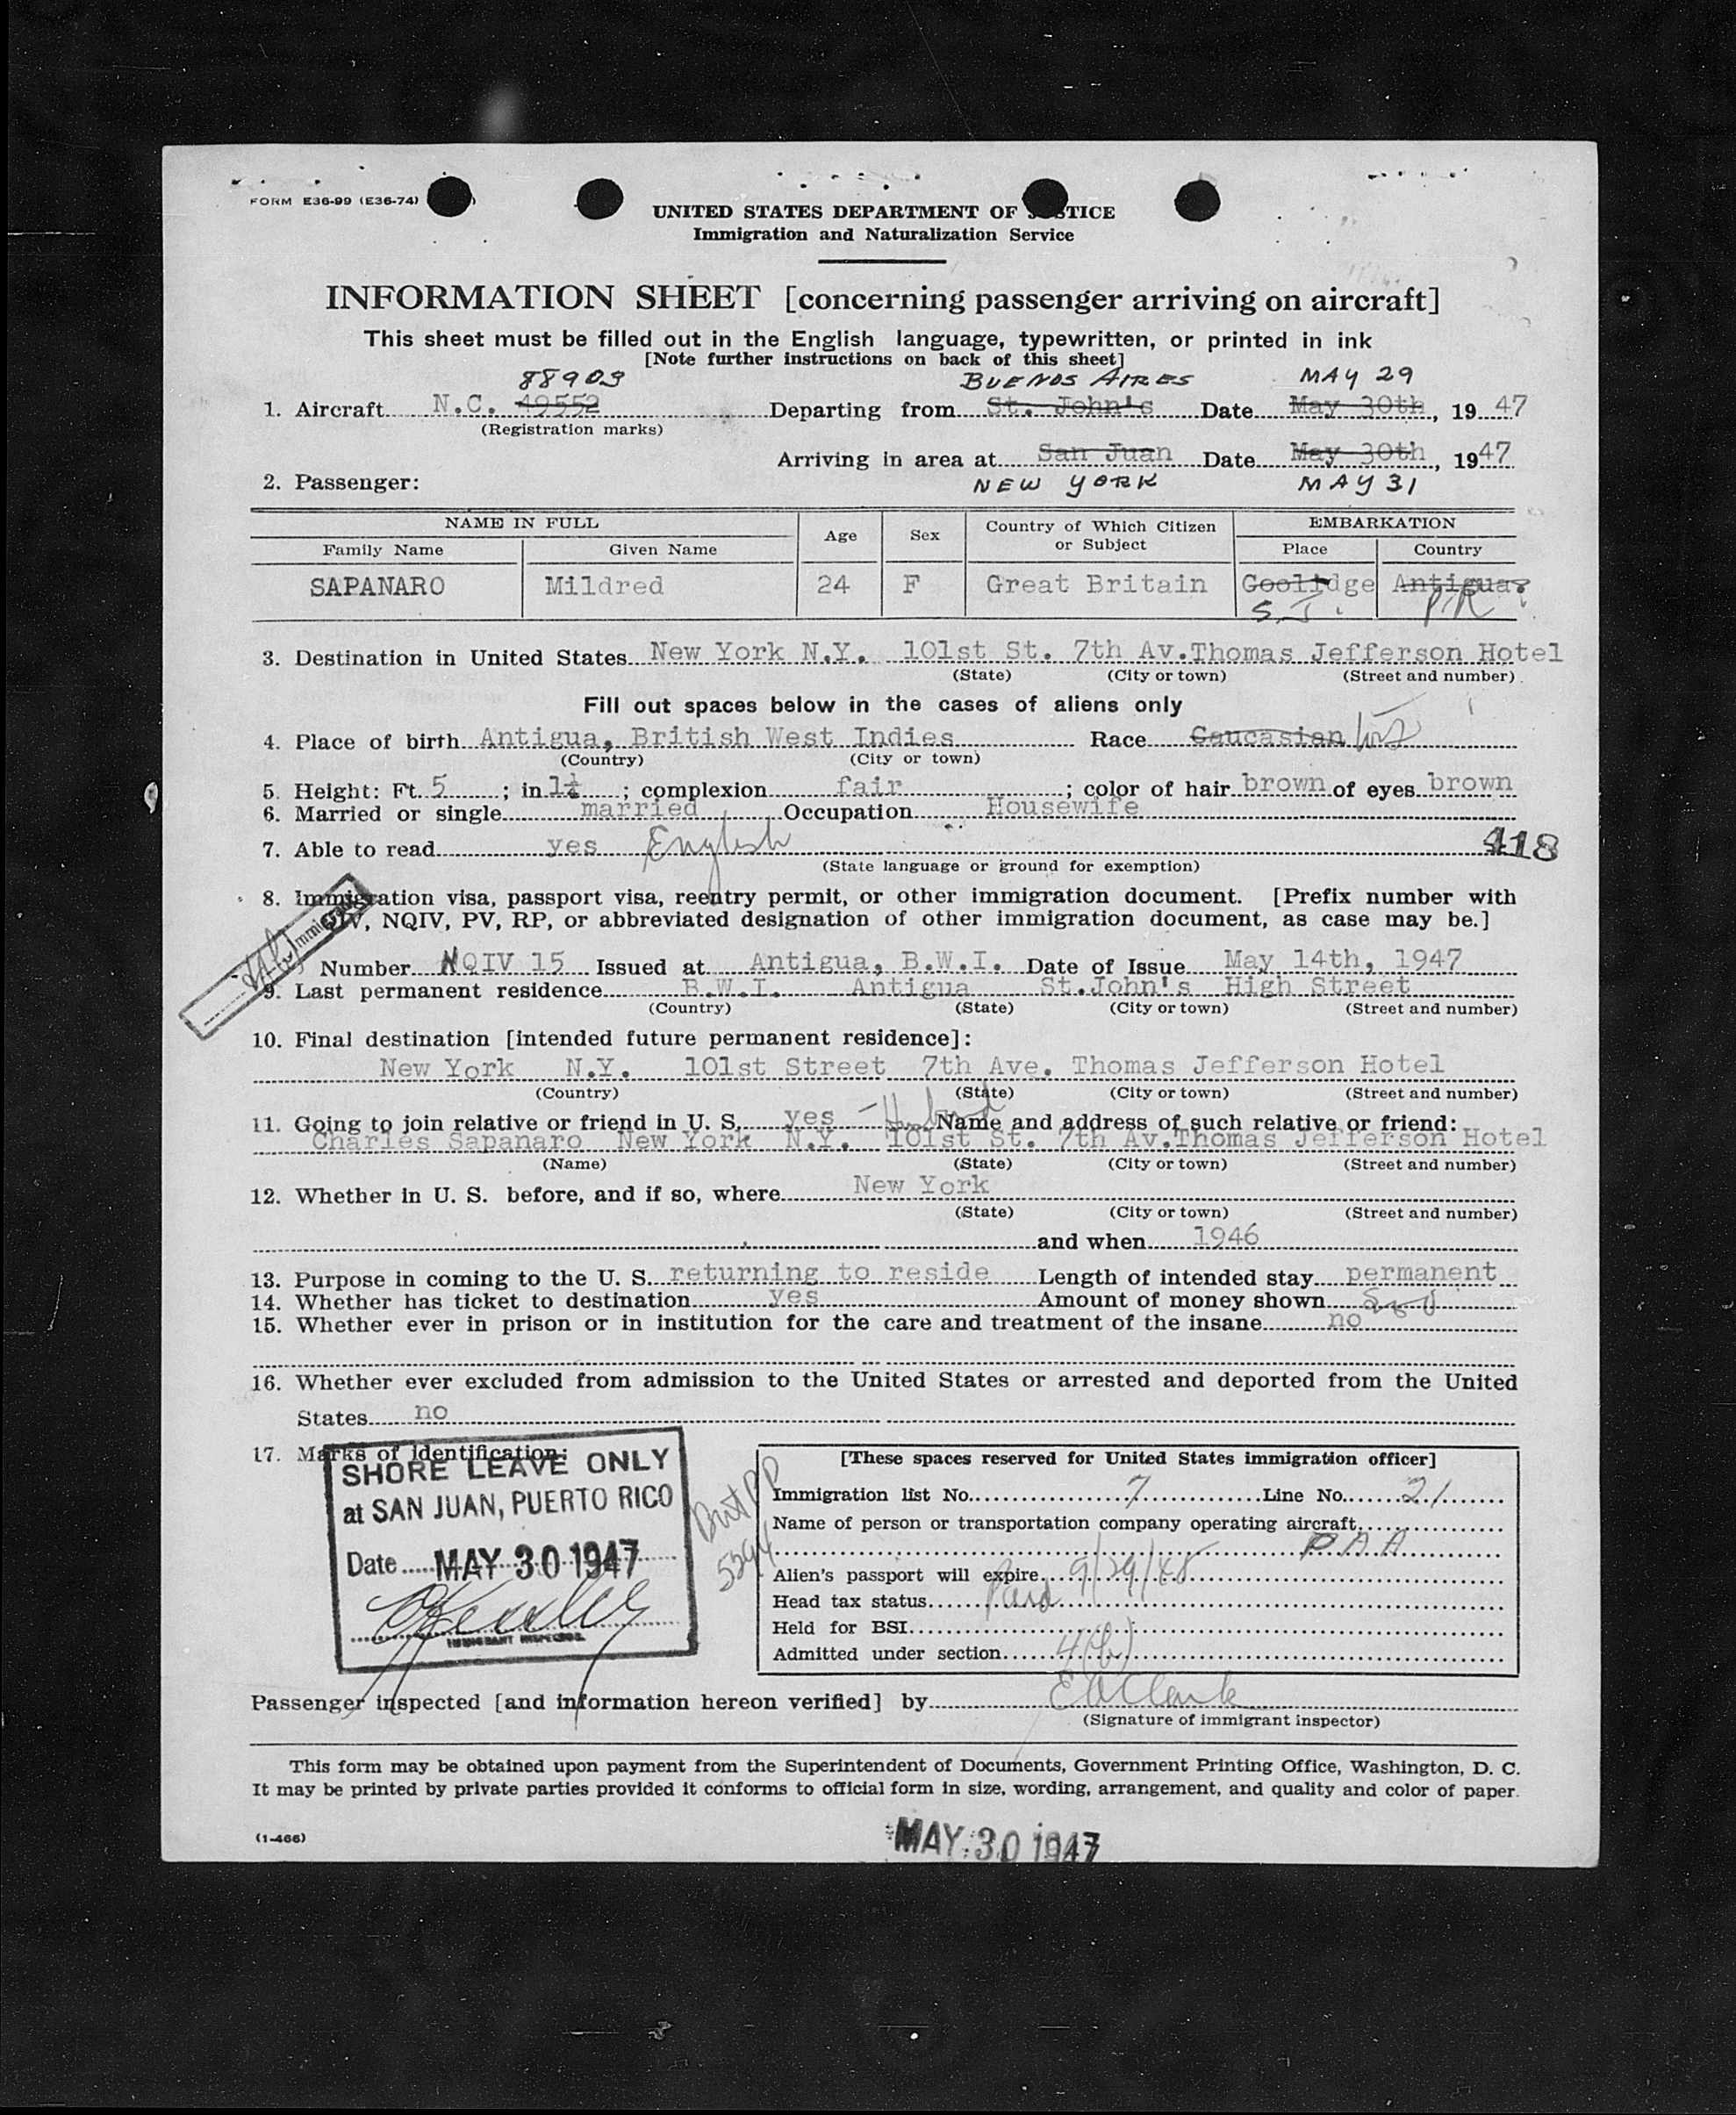 FORM E36-99 (E36-74)
UNITED STATES DEPARTMENT OF JUSTICE
Immigration and Naturalization Service
INFORMATION SHEET [concerning passenger arriving on aircraft]
This sheet must be filled out in the English language, typewritten, or printed in ink
[Note further instructions on back of this sheet]
88909 BUENOS AIRES MAY 29
1. Aircraft N.C. 49552 Departing from St. John's Date May 30th, 19 47
(Registration marks)
Arriving in area at San Juan Date May 30th, 19 47
2. Passenger: NEW YORK MAY 31
NAME IN FULL Age Sex Country of Which Citizen or Subject EMBARKATION
Family Name Given Name Place Country
SAPANARO Mildred 24 F Great Britain Coolidge Antigua
S.J. P.R.
3. Destination in United States New York N.Y. 101st St. 7th Av. Thomas Jefferson Hotel
(State) (City or town) (Street and number)
Fill out spaces below in the cases of aliens only
4. Place of birth Antigua, British West Indies Race Caucasian
(Country) (City or town)
5. Height: Ft. 5 ; in 1½ ; complexion fair ; color of hair brown of eyes brown
6. Married or single married Occupation Housewife
7. Able to read yes English 418
(State language or ground for exemption)
8. Immigration visa, passport visa, reentry permit, or other immigration document. [Prefix number with
QIV, NQIV, PV, RP, or abbreviated designation of other immigration document, as case may be.]
Number NQIV 15 Issued at Antigua, B.W.I. Date of Issue May 14th, 1947
9. Last permanent residence B.W.I. Antigua St. John's High Street
(Country) (State) (City or town) (Street and number)
10. Final destination [intended future permanent residence]:
New York N.Y. 101st Street 7th Ave. Thomas Jefferson Hotel
(Country) (State) (City or town) (Street and number)
11. Going to join relative or friend in U. S. yes - Husband Name and address of such relative or friend:
Charles Sapanaro New York N.Y. 101st St. 7th Av. Thomas Jefferson Hotel
(Name) (State) (City or town) (Street and number)
12. Whether in U. S. before, and if so, where New York
(State) (City or town) (Street and number)
and when 1946
13. Purpose in coming to the U. S. returning to reside Length of intended stay permanent
14. Whether has ticket to destination yes Amount of money shown
15. Whether ever in prison or in institution for the care and treatment of the insane no
16. Whether ever excluded from admission to the United States or arrested and deported from the United
States no
17. Marks of identification:
SHORE LEAVE ONLY
at SAN JUAN, PUERTO RICO
Date MAY 30 1947
IMMIGRANT INSPECTOR
Brit PP
5294
[These spaces reserved for United States immigration officer]
Immigration list No. 7 Line No. 21
Name of person or transportation company operating aircraft
P A A
Alien's passport will expire 9/29/48
Head tax status Paid
Held for BSI
Admitted under section 4(b)
Passenger inspected [and information hereon verified] by E A Clark
(Signature of immigrant inspector)
This form may be obtained upon payment from the Superintendent of Documents, Government Printing Office, Washington, D. C.
It may be printed by private parties provided it conforms to official form in size, wording, arrangement, and quality and color of paper.
(1-466)
MAY 30 1947